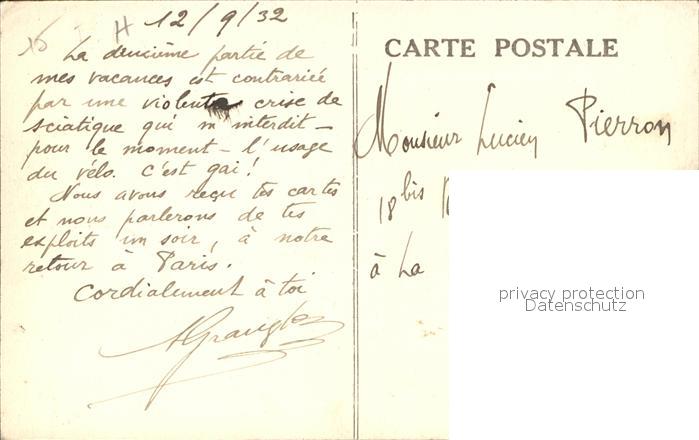 12/9/32
La deuxième partie de
mes vacances est contrariée
par une violente crise de
sciatique qui m'interdit -
pour le moment - l'usage
du vélo. C'est gai!
Nous avons reçu tes cartes
et nous parlerons de tes
exploits un soir, à notre
retour à Paris.
Cordialement à toi
CARTE POSTALE
Monsieur Lucien Pierron
18 bis
à La
privacy protection
Datenschutz